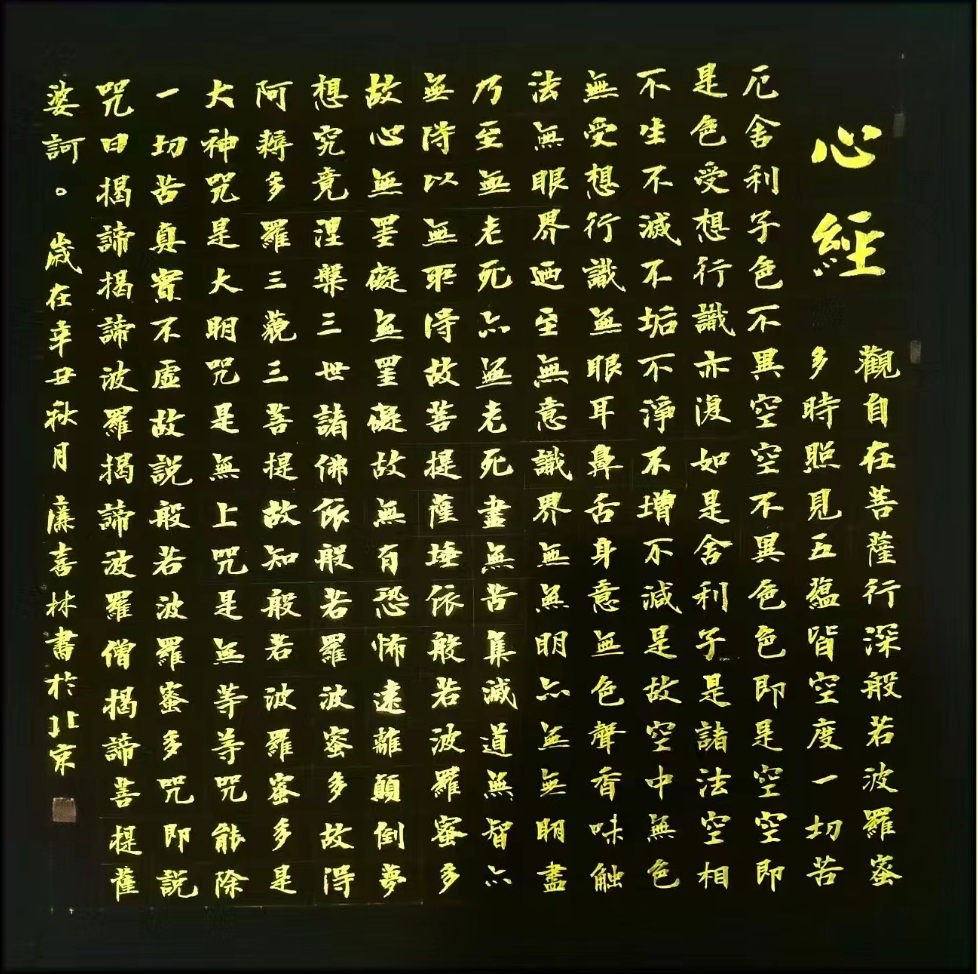 心經
觀自在菩薩行深般若波羅蜜
多時照見五蘊皆空度一切苦
厄舍利子色不異空空不異色色即是空空即
是色受想行識亦復如是舍利子是諸法空相
不生不滅不垢不淨不增不減是故空中無色
無受想行識無眼耳鼻舌身意無色聲香味触
法無眼界廼至無意識界無無明亦無無明盡
乃至無老死亦無老死盡無苦集滅道無智亦
無得以無所得故菩提薩埵依般若波羅蜜多
故心無罣礙無罣礙故無有恐怖遠離顛倒夢
想究竟涅槃三世諸佛依般若羅波蜜多故得
阿耨多羅三藐三菩提故知般若波羅蜜多是
大神咒是大明咒是無上咒是無等等咒能除
一切苦真實不虛故說般若波羅蜜多咒即說
咒曰揭諦揭諦波羅揭諦波羅僧揭諦菩提薩
婆訶。歲在辛丑秋月廉喜林書於北京